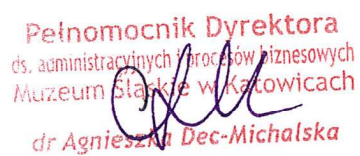 Pełnomocnik Dyrektora
ds. administracyjnych i procesów biznesowych
Muzeum Śląskie w Katowicach
dr Agnieszka Dec-Michalska